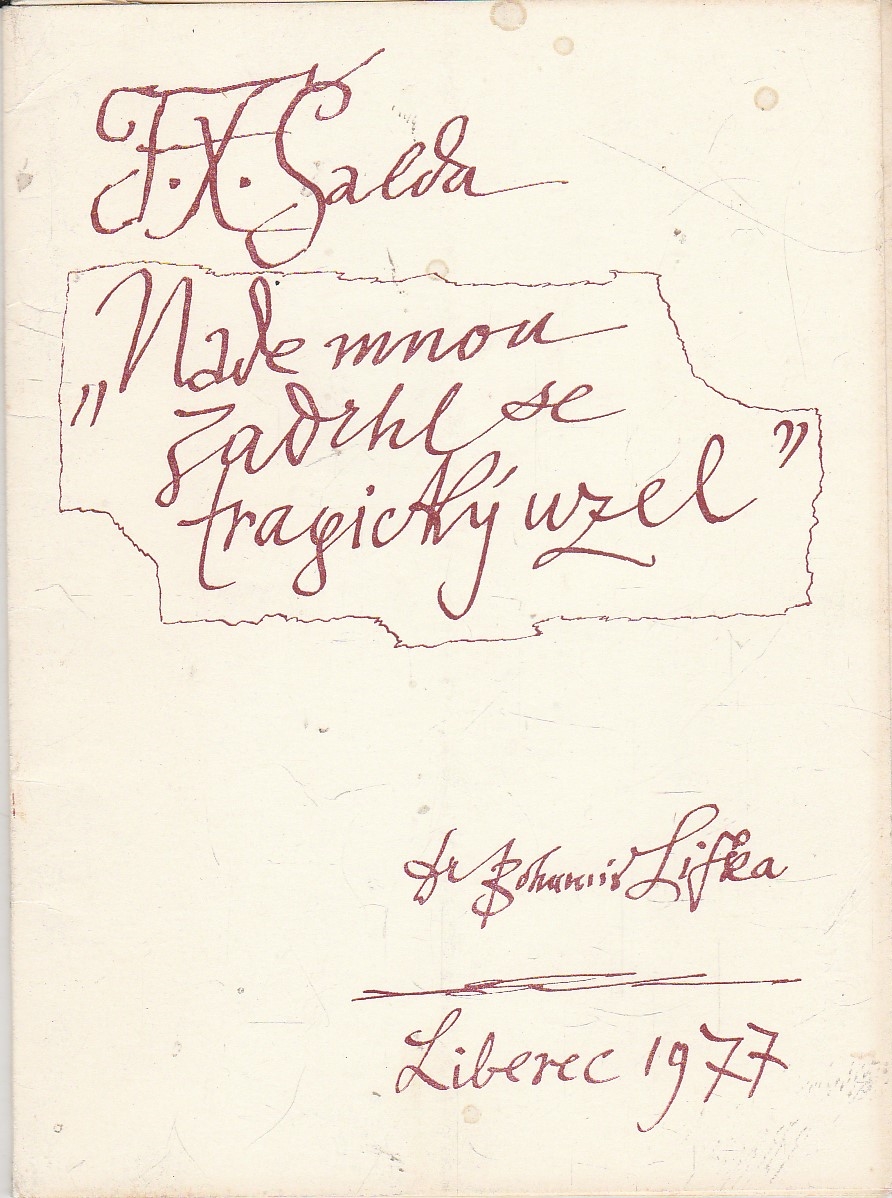 F.X. Šalda
„Nade mnou
zadrhl se
tragický uzel”
Dr Bohumír Lifka
Liberec 1977